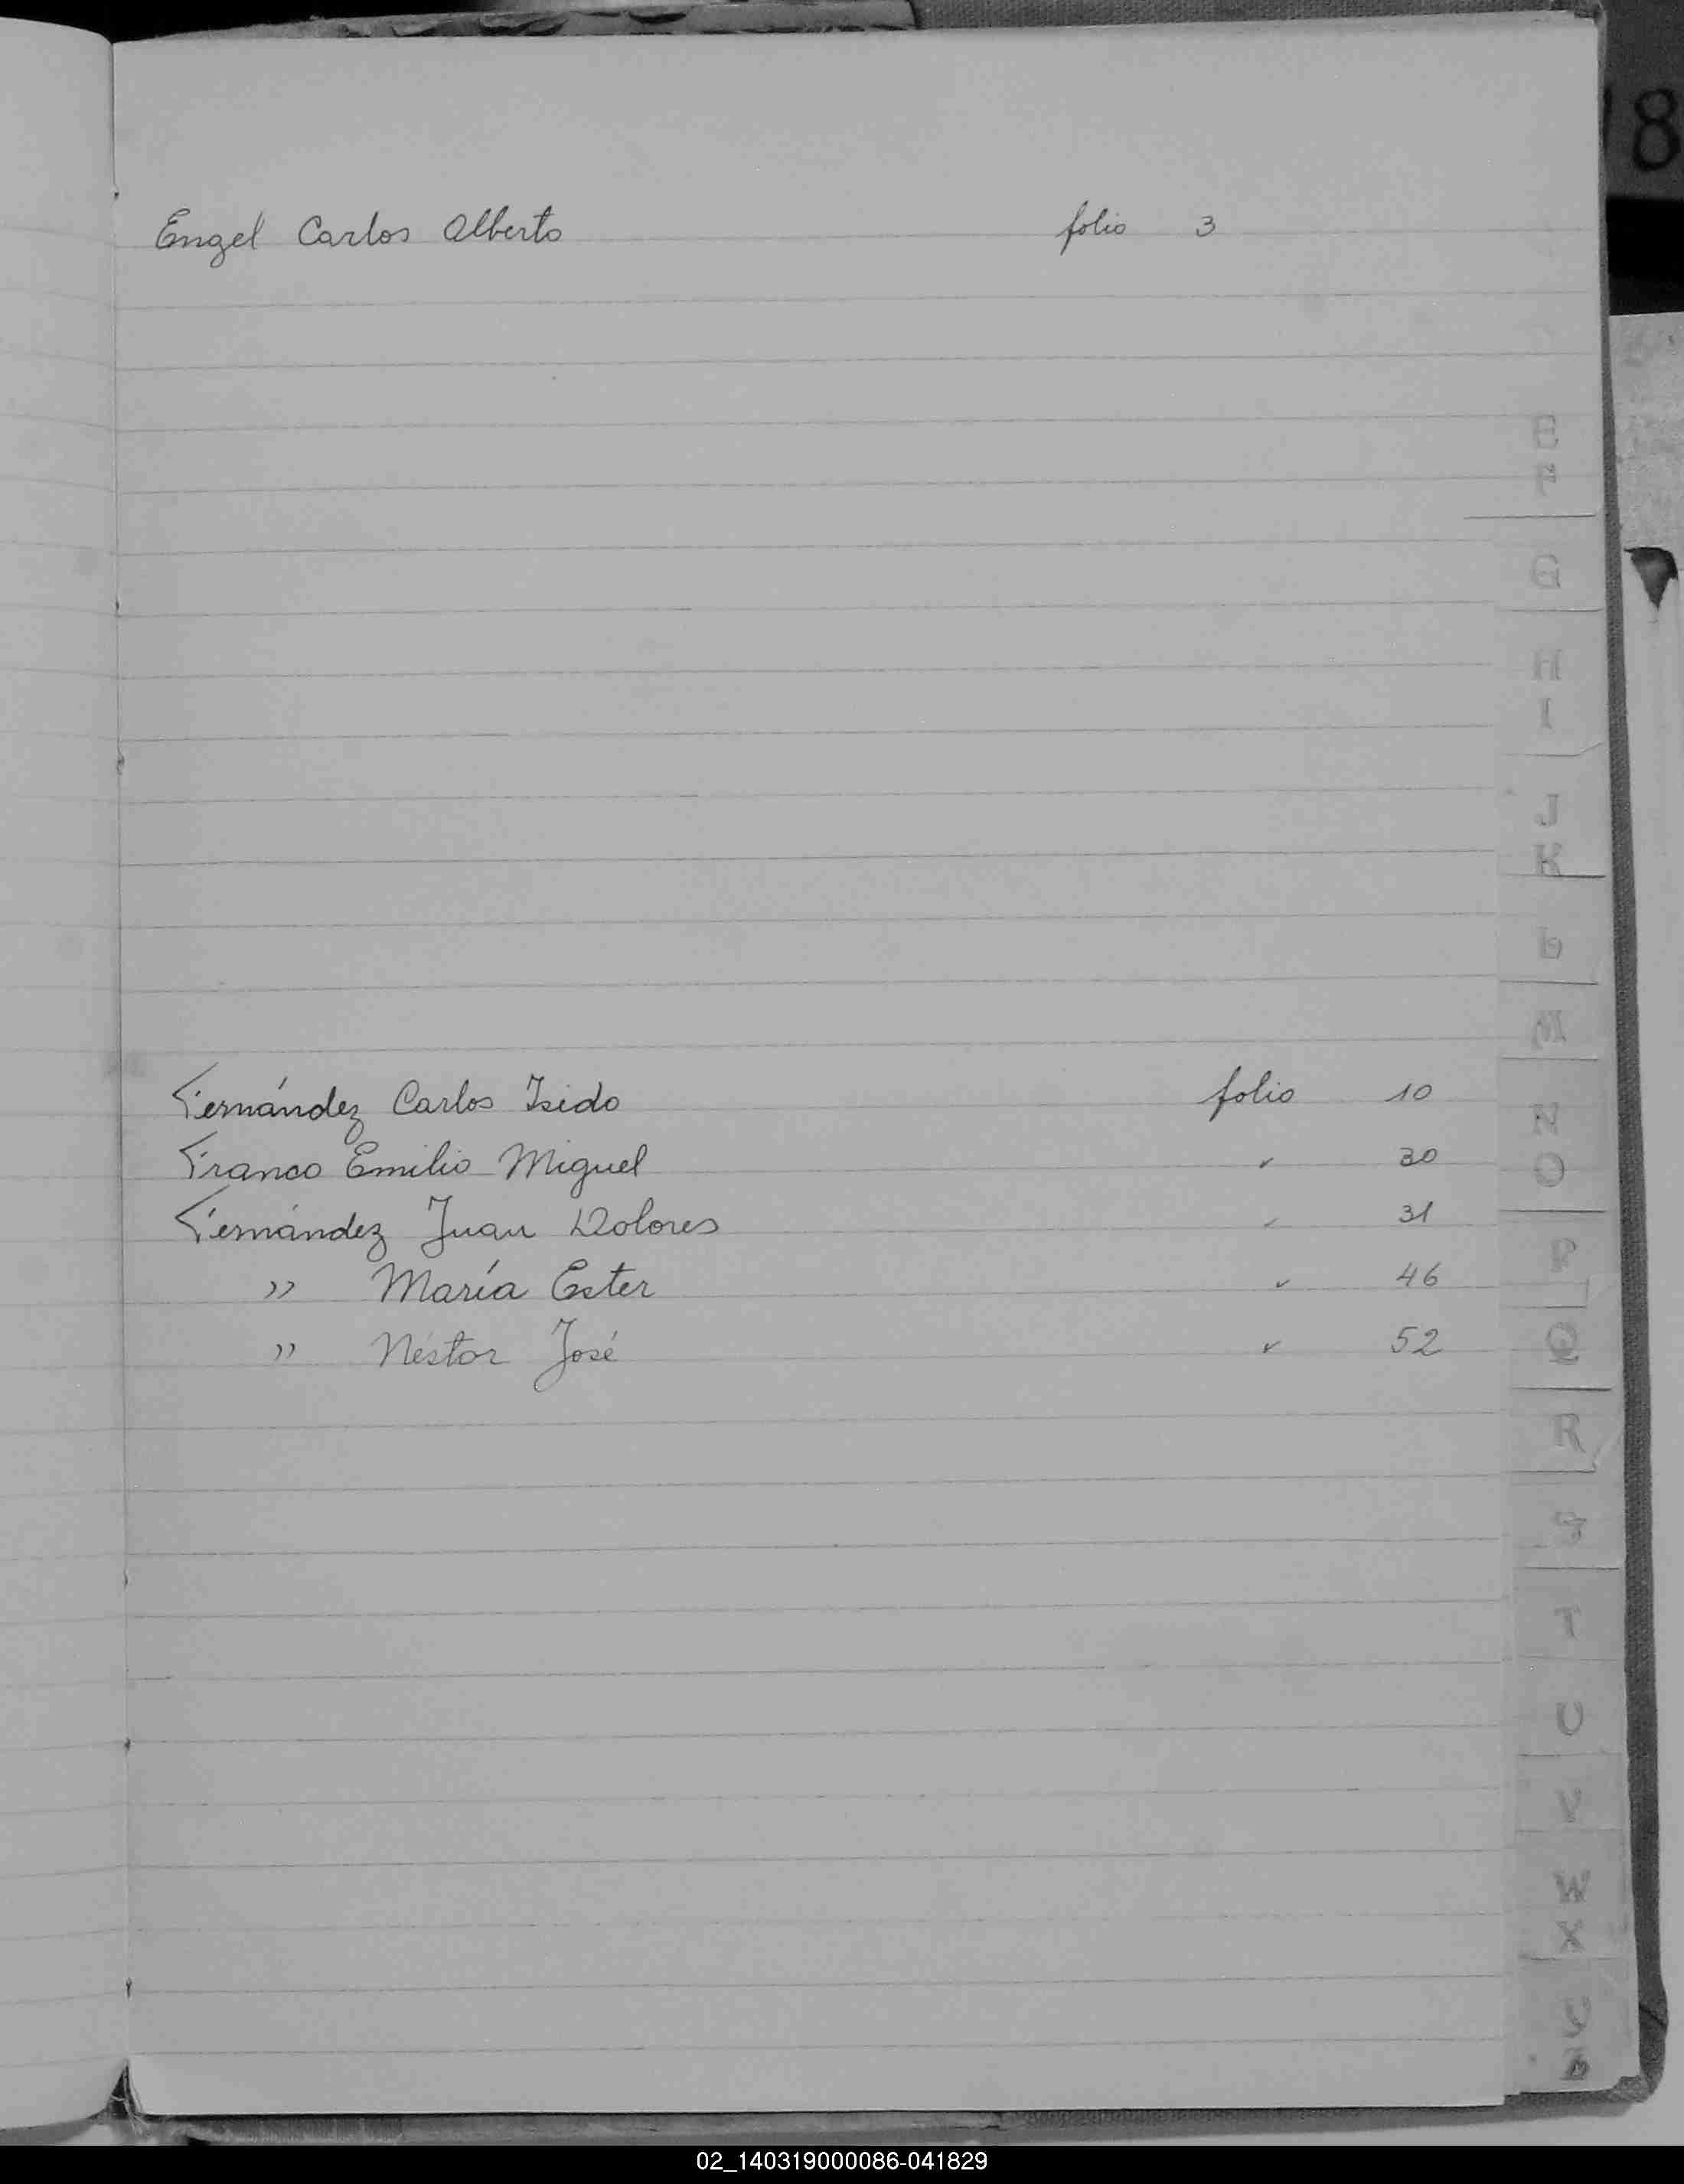 8
Engel Carlos Alberto folio 3
E
F
G
H
I
J
K
L
M
Fernández Carlos Isido folio 10
Franco Emilio Miguel " 30
Fernández Juan Dolores " 31
" María Ester " 46
" Néstor José " 52
N
O
P
Q
R
S
T
U
V
W
X
Y
Z
02_140319000086-041829